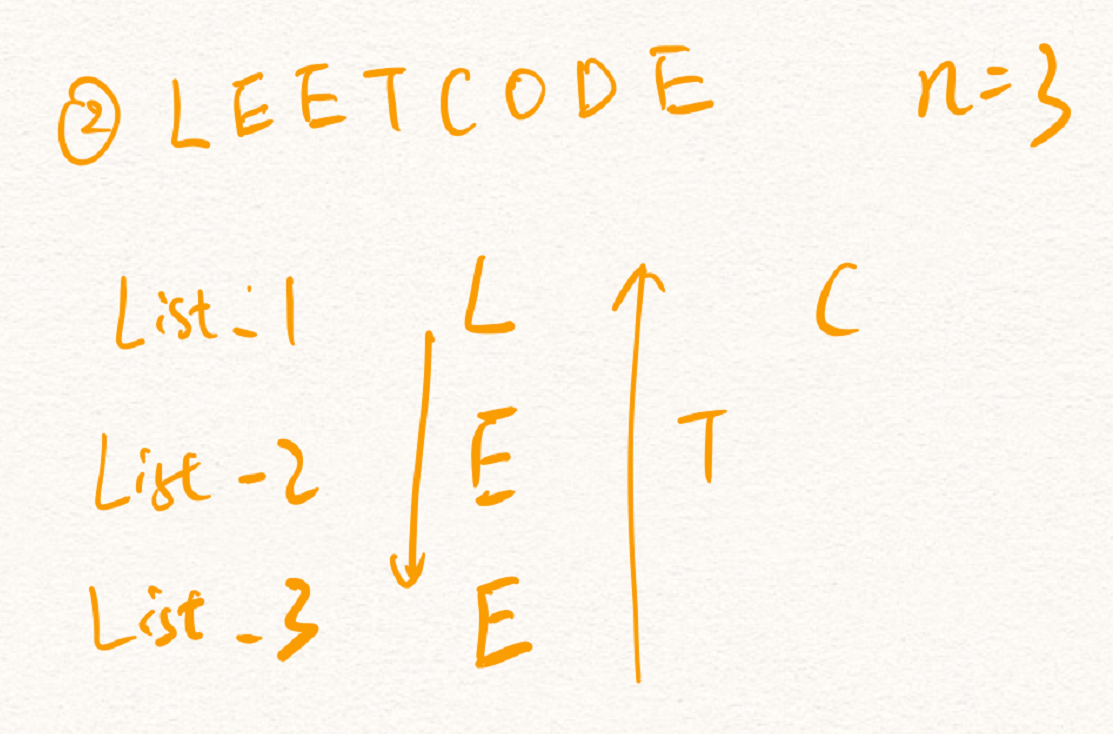 ② LEETCODE n=3
List-1 L C
List-2 E T
List-3 E